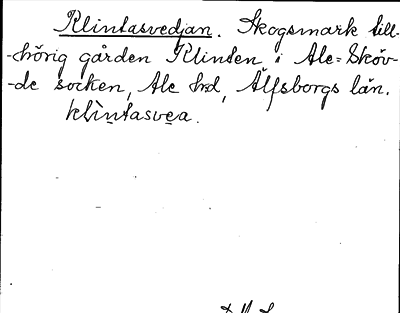 Klintasvedjan. Skogsmark till-
-hörig gården Klinten i Ale-Sköv-
-de socken, Ale hd, Älfsborgs län.
klìntasvea.